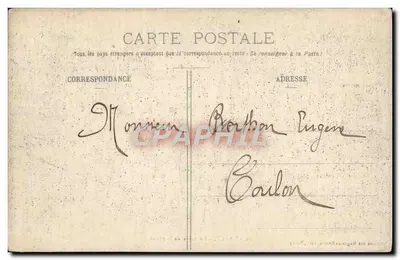 CARTE POSTALE
Tous les pays étrangers n'acceptent pas la correspondance au recto (Se renseigner à la Poste)
CORRESPONDANCE
ADRESSE
Monsieur Berthon Eugene
Toulon
CPAPHIL